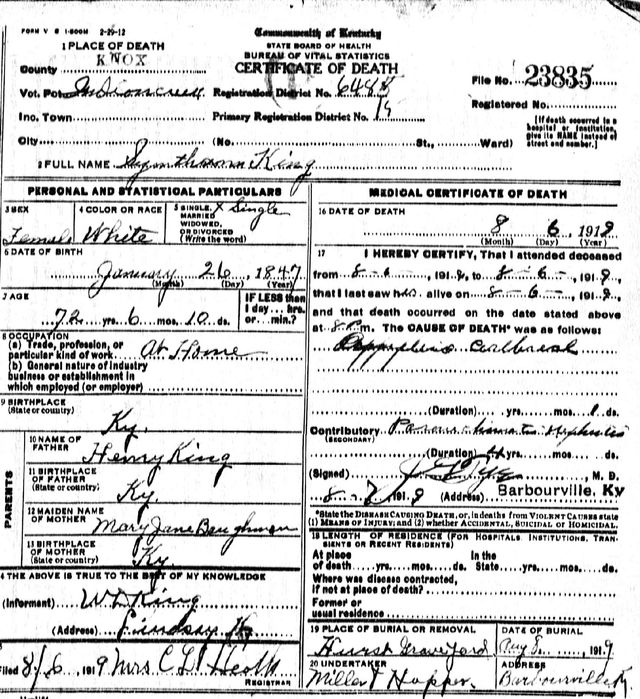 FORM V S 1-500M 2-29-12
Commonwealth of Kentucky
STATE BOARD OF HEALTH
BUREAU OF VITAL STATISTICS
CERTIFICATE OF DEATH
1 PLACE OF DEATH
County KNOX
Vot. Pct. Registration District No. 6488
File No. 23835
Inc. Town Primary Registration District No. 19
Registered No.
City (No. St., Ward)
[If death occurred in a hospital or institution, give its NAME instead of street and number.]
2 FULL NAME King
PERSONAL AND STATISTICAL PARTICULARS
3 SEX
Female
4 COLOR OR RACE
White
5 SINGLE, X Single
MARRIED
WIDOWED,
OR DIVORCED
(Write the word)
6 DATE OF BIRTH
January 26, 1847
(Month) (Day) (Year)
7 AGE
72 yrs. 6 mos. 10 ds.
IF LESS than
1 day... hrs.
or... min.?
8 OCCUPATION
(a) Trade, profession, or
particular kind of work At Home
(b) General nature of industry
business or establishment in
which employed (or employer)
9 BIRTHPLACE
(State or country)
Ky.
PARENTS
10 NAME OF
FATHER
Henry King
11 BIRTHPLACE
OF FATHER
(State or country)
Ky.
12 MAIDEN NAME
OF MOTHER
Mary Jane Baughman
13 BIRTHPLACE
OF MOTHER
(State or country)
Ky.
4 THE ABOVE IS TRUE TO THE BEST OF MY KNOWLEDGE
(Informant) W D King
(Address) Lindsay Ky
Filed 8/6 1919 Mrs. C L Heath
REGISTRAR
MEDICAL CERTIFICATE OF DEATH
16 DATE OF DEATH
8 6, 1919
(Month) (Day) (Year)
17 I HEREBY CERTIFY, That I attended deceased
from 8-6-, 1919, to 8-6-, 1919,
that I last saw h alive on 8-6-, 1919,
and that death occurred on the date stated above
at 8 m. The CAUSE OF DEATH* was as follows:
(Duration) yrs. mos. 1 ds.
Contributory Nephritis
(SECONDARY)
(Duration) yrs. mos. ds.
(Signed) , M. D.
8-7, 1919 (Address) Barbourville, Ky
*State the DISEASE CAUSING DEATH, or, in deaths from VIOLENT CAUSES state
(1) MEANS OF INJURY; and (2) whether ACCIDENTAL, SUICIDAL OR HOMICIDAL.
18 LENGTH OF RESIDENCE (FOR HOSPITALS, INSTITUTIONS, TRANSIENTS OR RECENT RESIDENTS)
At place In the
of death yrs. mos. ds. State yrs. mos. ds.
Where was disease contracted,
if not at place of death?
Former or
usual residence
19 PLACE OF BURIAL OR REMOVAL
Hurst Graveyard
DATE OF BURIAL
Aug 8, 1919
20 UNDERTAKER
Miller & Hopper
ADDRESS
Barbourville Ky